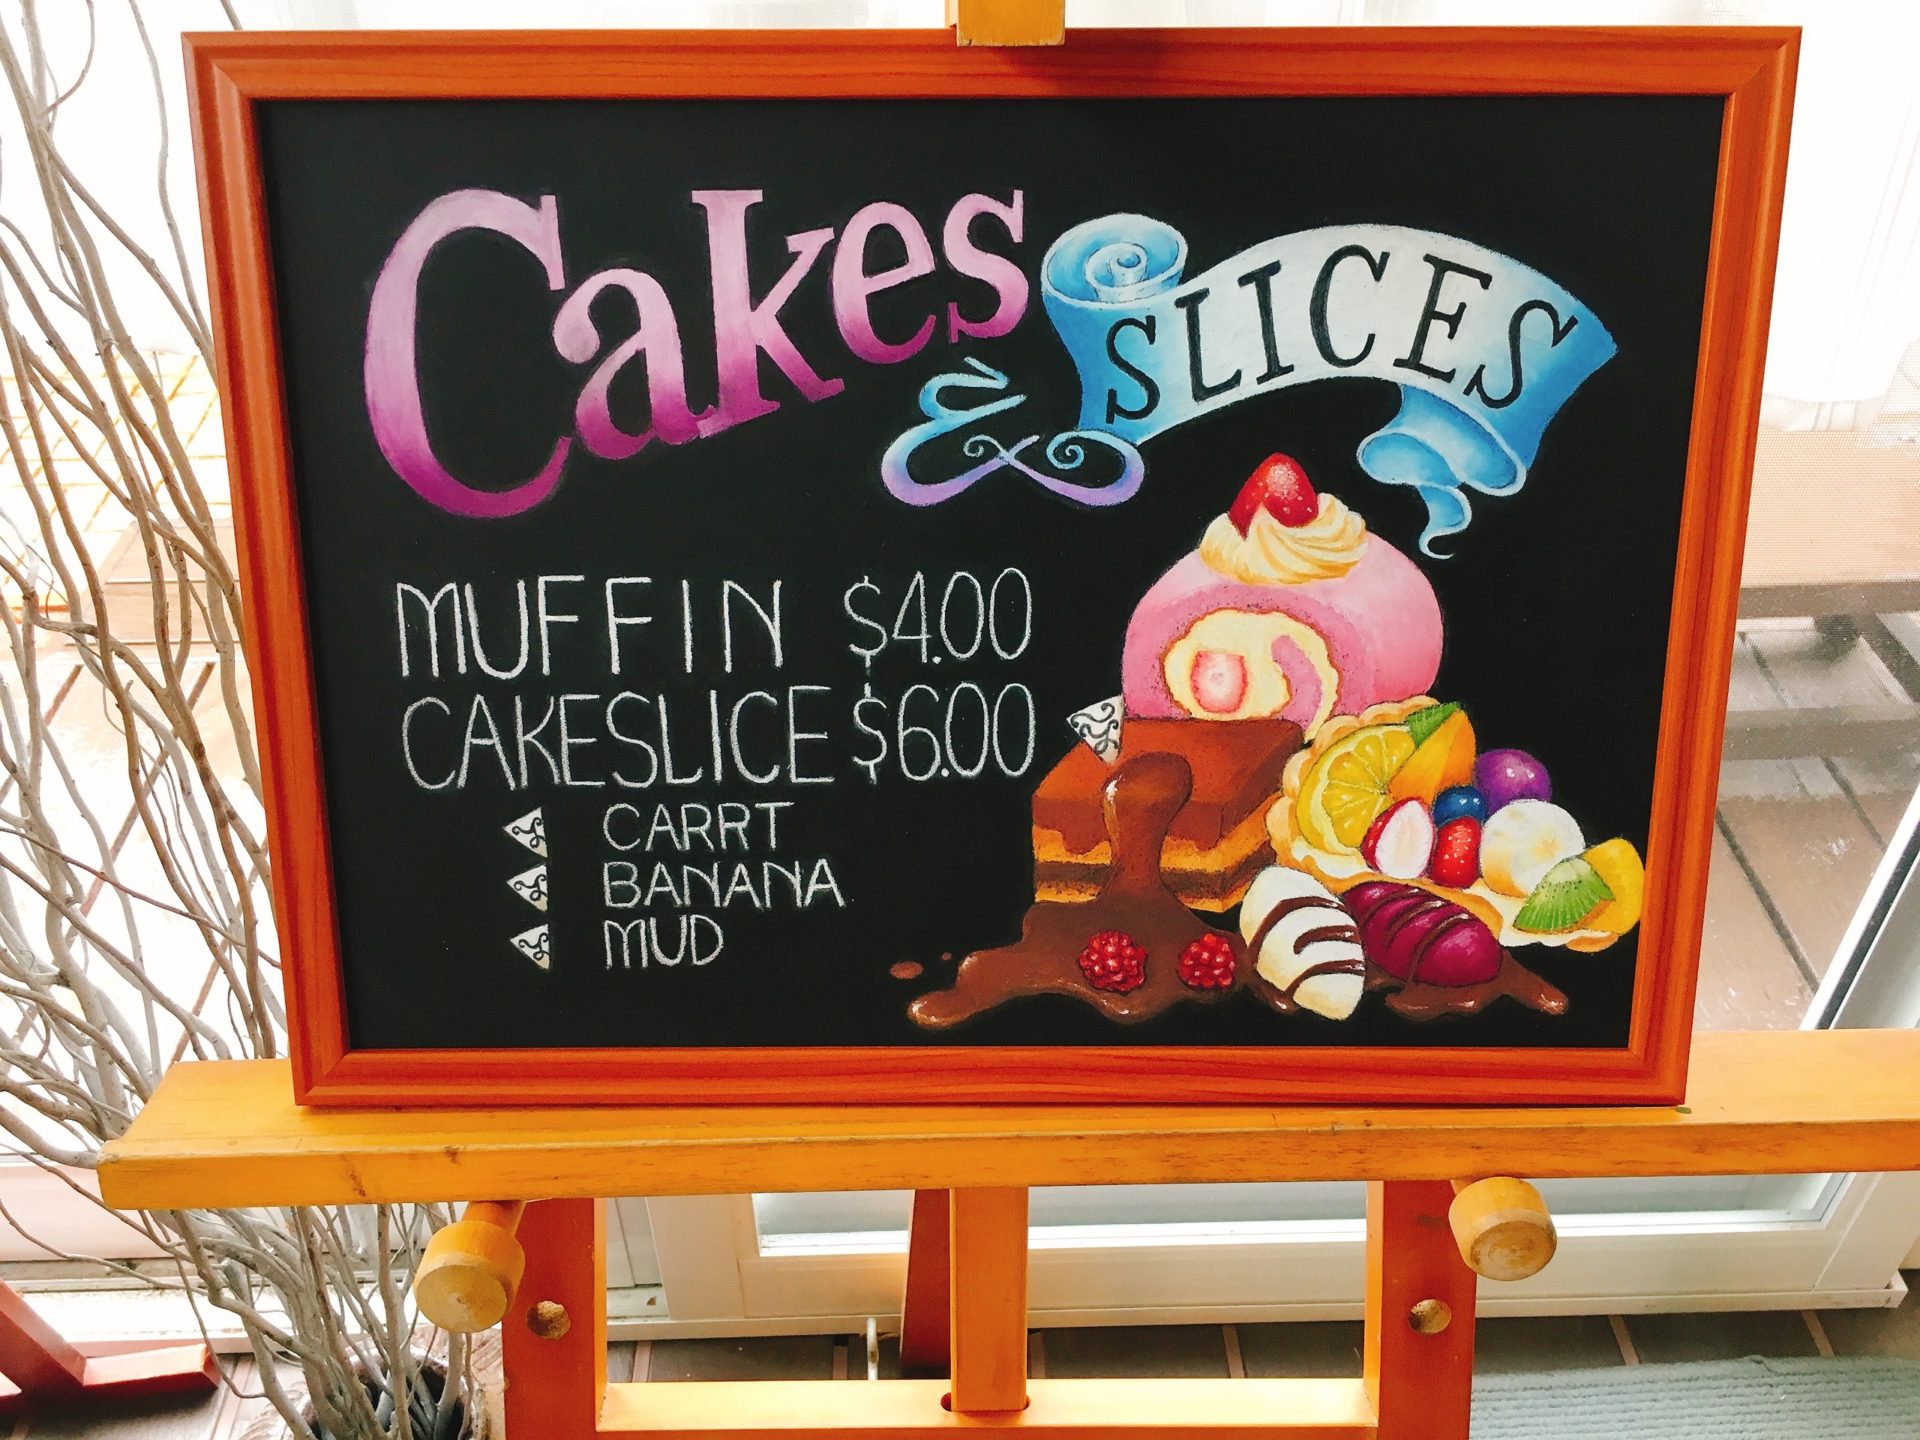 Cakes
& SLICES
MUFFIN $4.00
CAKESLICE $6.00
CARRT
BANANA
MUD